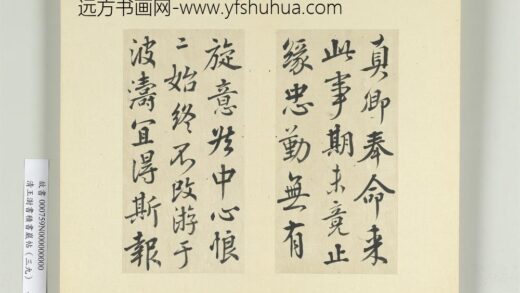 远方书画网-www.yfshuhua.com
真卿奉命来
此事期未竟止
緣忠勤無有
旋意然中心悢
〻始終不改游于
波濤宜得斯報
故書 000759N000000000
清王澍書積書巖帖(三元)